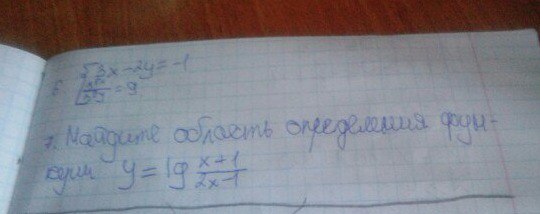 6. { 3x-2y=-1
= 9
7. Найдите область определения фун-
кции y=lg (x+1)/(2x-1)